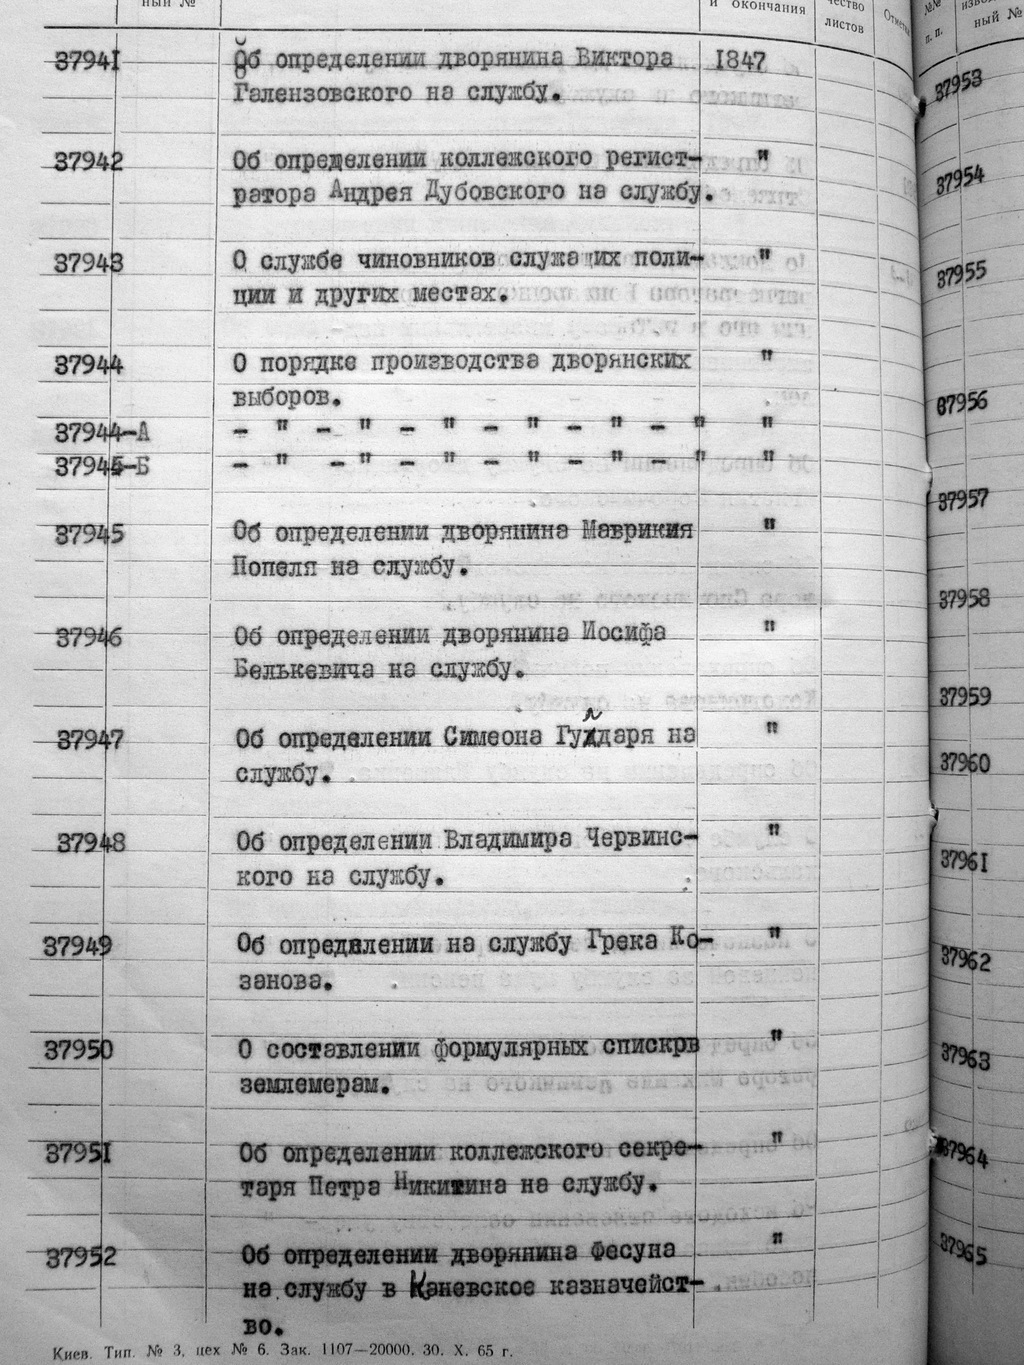 ный №
и окончания
чество
листов
№№
п. п.
ный №
37941 Об определении дворянина Виктора 1847
Галензовского на службу.
37942 Об определении коллежского регист- "
ратора Андрея Дубовского на службу.
37943 О службе чиновников служащих поли- "
ции и других местах.
37944 О порядке производства дворянских "
выборов.
37944-А - " - " - " - " - " - " "
37944-Б - " - " - " - " - " - " "
37945 Об определении дворянина Маврикия "
Попеля на службу.
37946 Об определении дворянина Иосифа "
Белькевича на службу.
37947 Об определении Симеона Гулдаря на "
службу.
37948 Об определении Владимира Червинс- "
кого на службу.
37949 Об определении на службу Грека Ко- "
занова.
37950 О составлении формулярных спискрв "
землемерам.
37951 Об определении коллежского секре- "
таря Петра Никитина на службу.
37952 Об определении дворянина Фесуна "
на службу в Каневское казначейст-
во.
Киев. Тип. № 3, цех № 6. Зак. 1107—20000. 30. X. 65 г.
37953
37954
37955
37956
37957
37958
37959
37960
37961
37962
37963
37964
37965